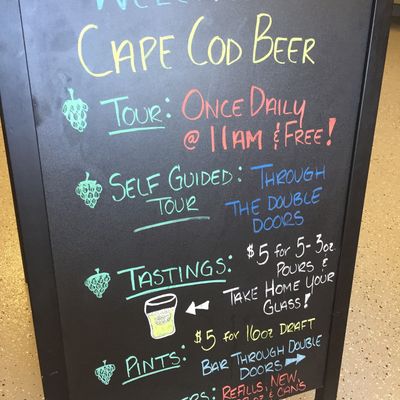 WELCOME
CAPE COD BEER
TOUR: ONCE DAILY
@ 11AM & FREE!
SELF GUIDED: THROUGH
TOUR THE DOUBLE
DOORS
TASTINGS: $5 for 5-3oz
POURS &
TAKE HOME YOUR
GLASS!
$5 for 16oz DRAFT
PINTS: BAR THROUGH DOUBLE
DOORS
REFILLS, NEW,
& CANS